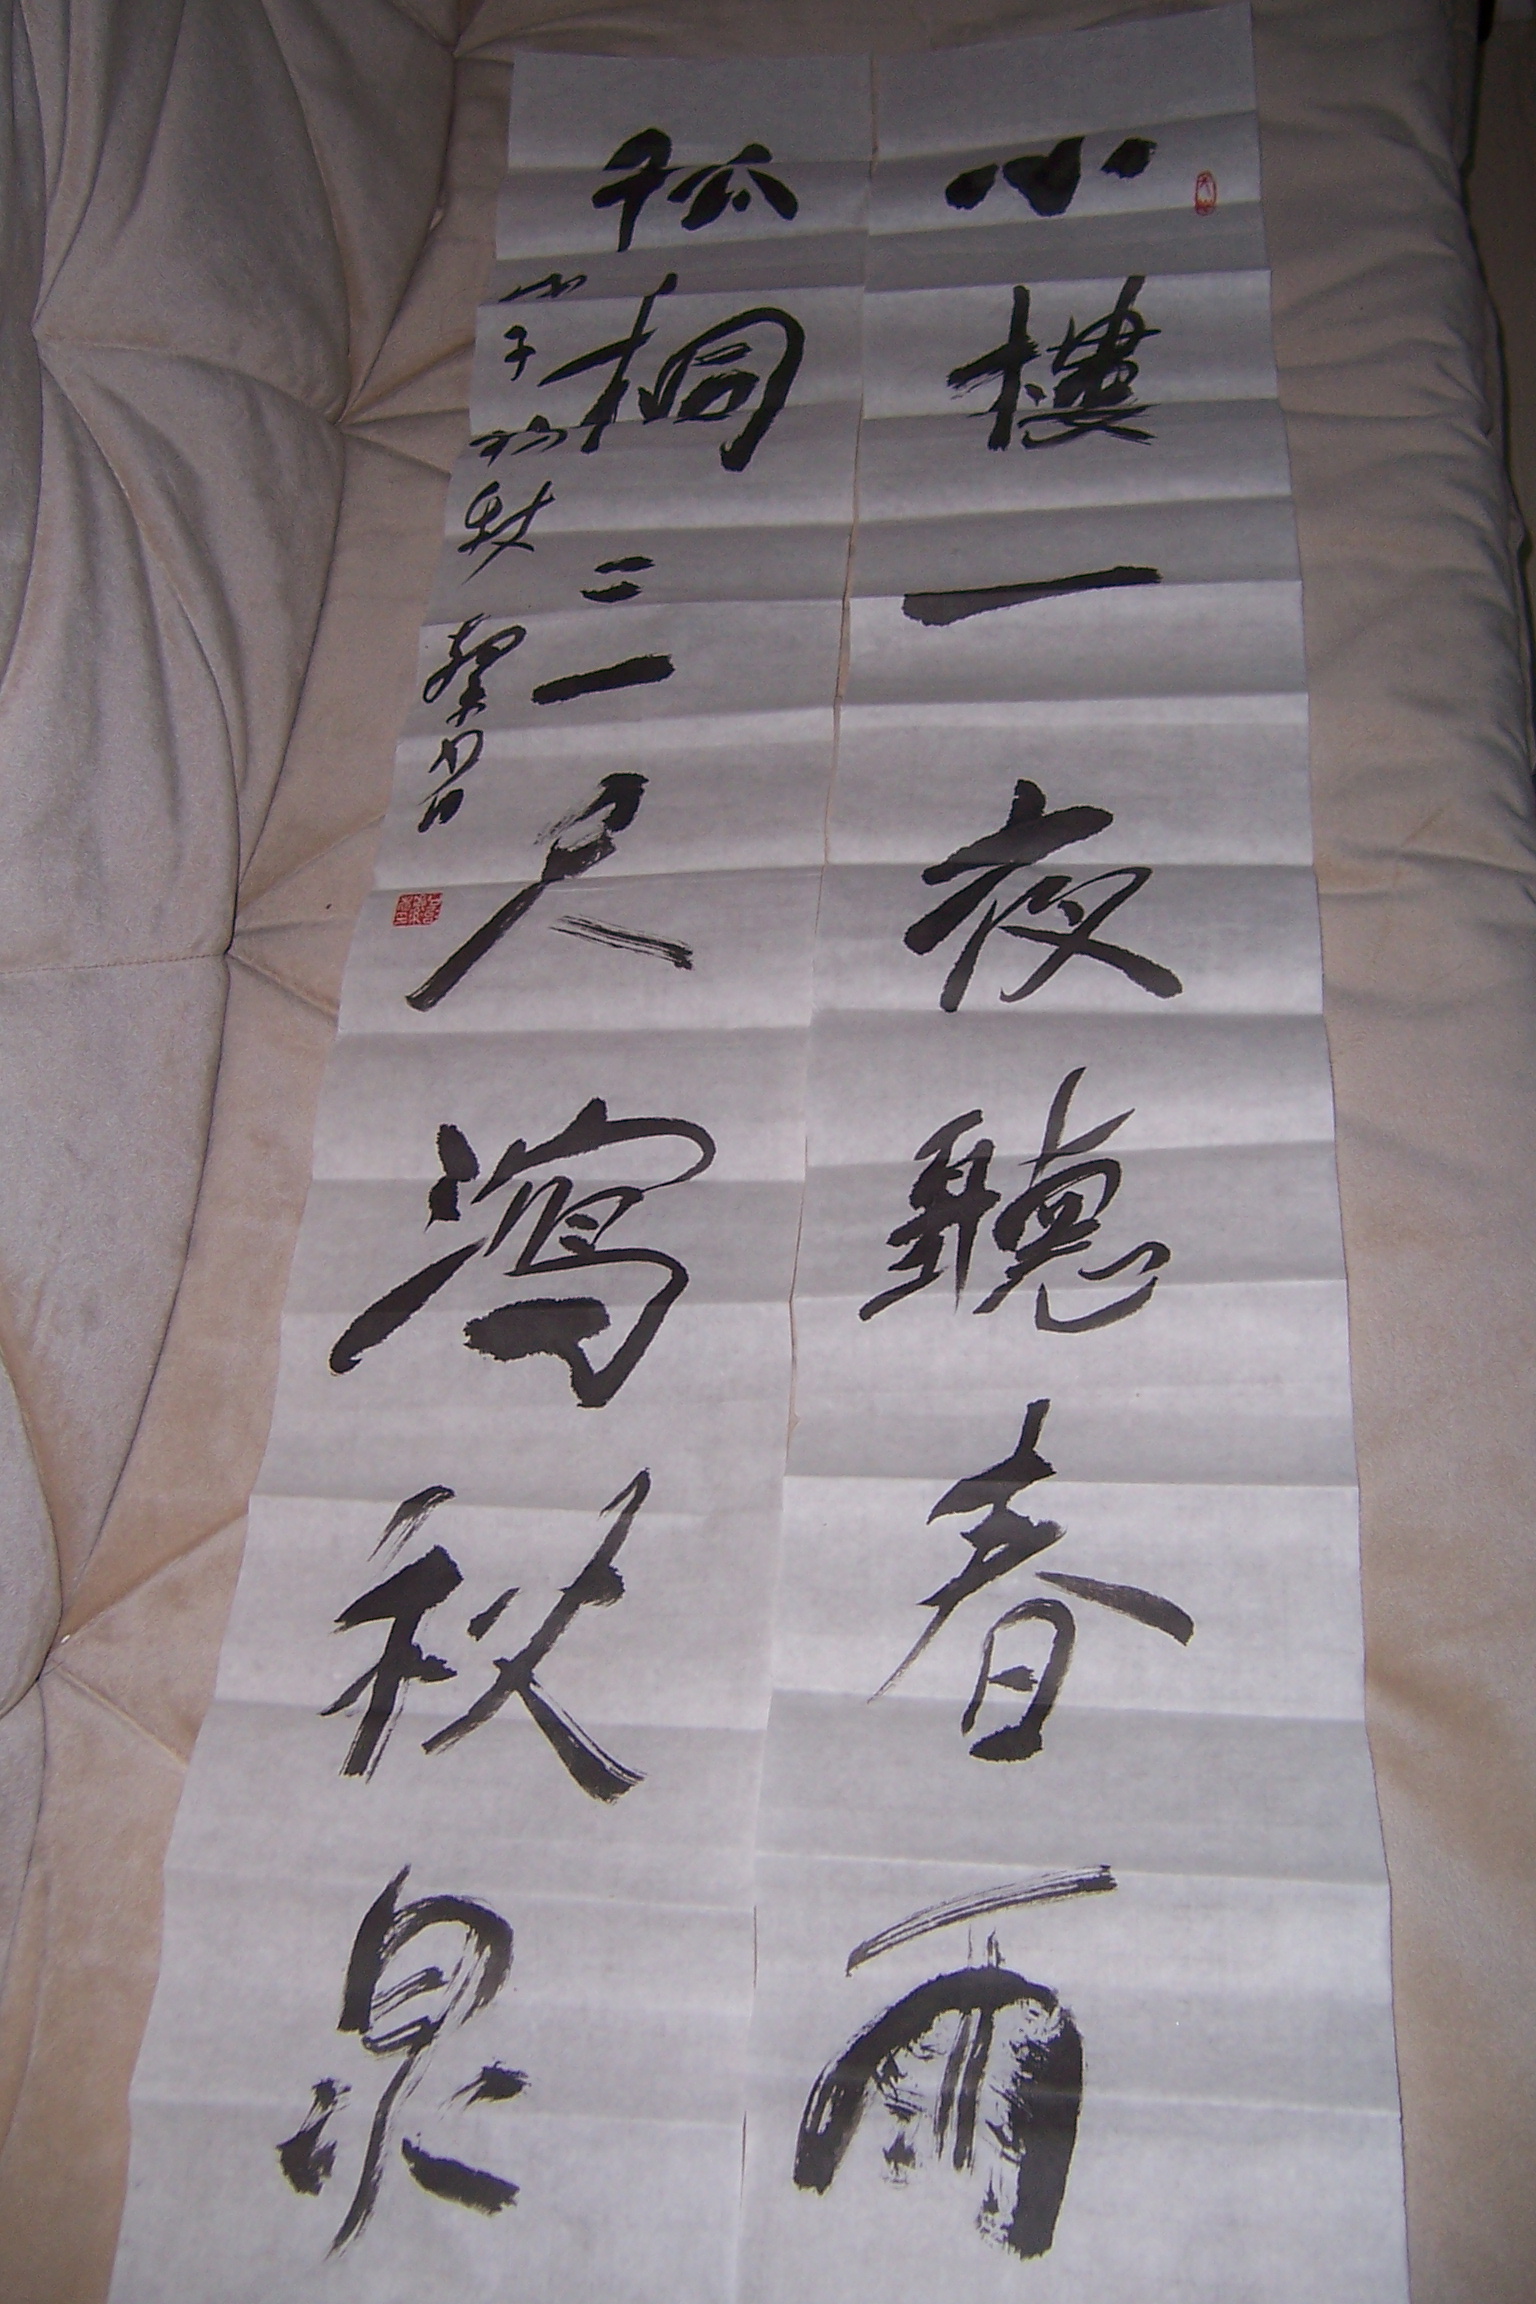 小樓一夜聽春雨
孤桐三尺瀉秋泉
子初秋